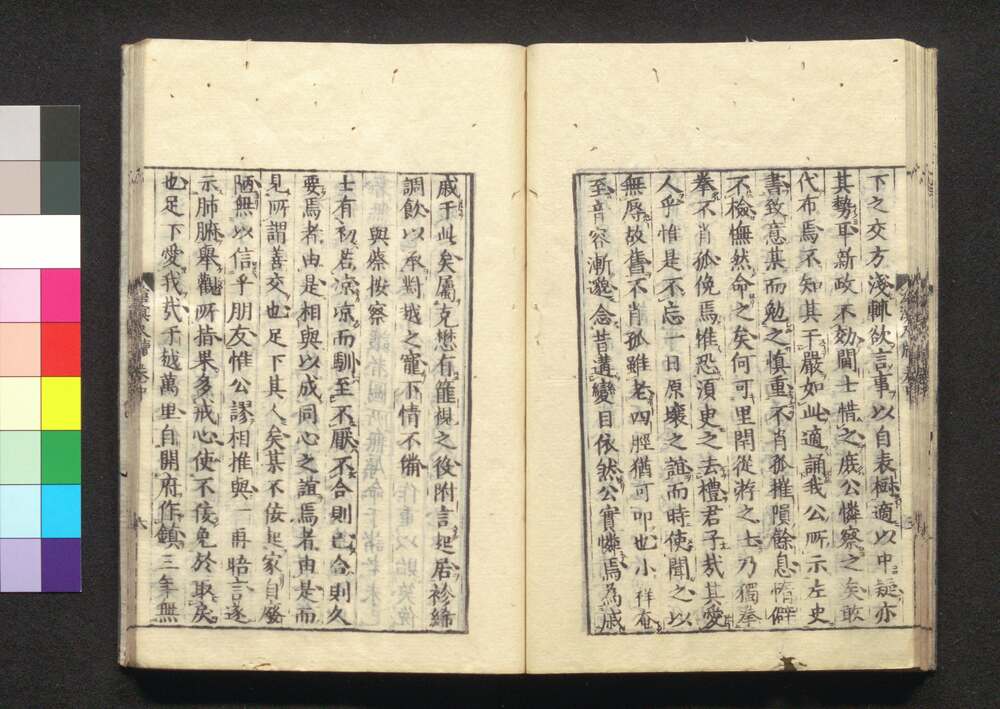 下之交方淺輒欲言事以自表樹適以中疑亦
其勢耳新政不効聞士惜之底公憐察之矣敢
代布焉不知其干嚴如此適誦我公所示左史
書致意某而勉之慎重不肖孤摧隕餘息惰僻
不檢憮然命之矣何可里閈從游之士乃獨拳
拳不肖孤俛焉惟恐須臾之去禮君子哉其愛
人乎惟是不忘一日原壤之誼而時使聞之以
無辱故舊不肖孤雖老四脛猶可叩也小祥奄
至音容漸邈念昔遘變目依然公實憐焉為戚
戚于此矣屬克懋有籠梘之役附言起居袗絺
調飲以承對越之寵下情不備
與蔡按察
士有初若凉凉而馴至不厭不合則已合則久
要焉者由是相與以成同心之誼焉者由是而
見所謂善交也足下其人矣某不佞起家自廢
陋無以信乎朋友惟公謬相推與一再晤言遂
示肺腑舉觀所措果多戒心使不佞免於取戾
也足下愛我哉于越萬里自開府作鎮三年無
卷中
六